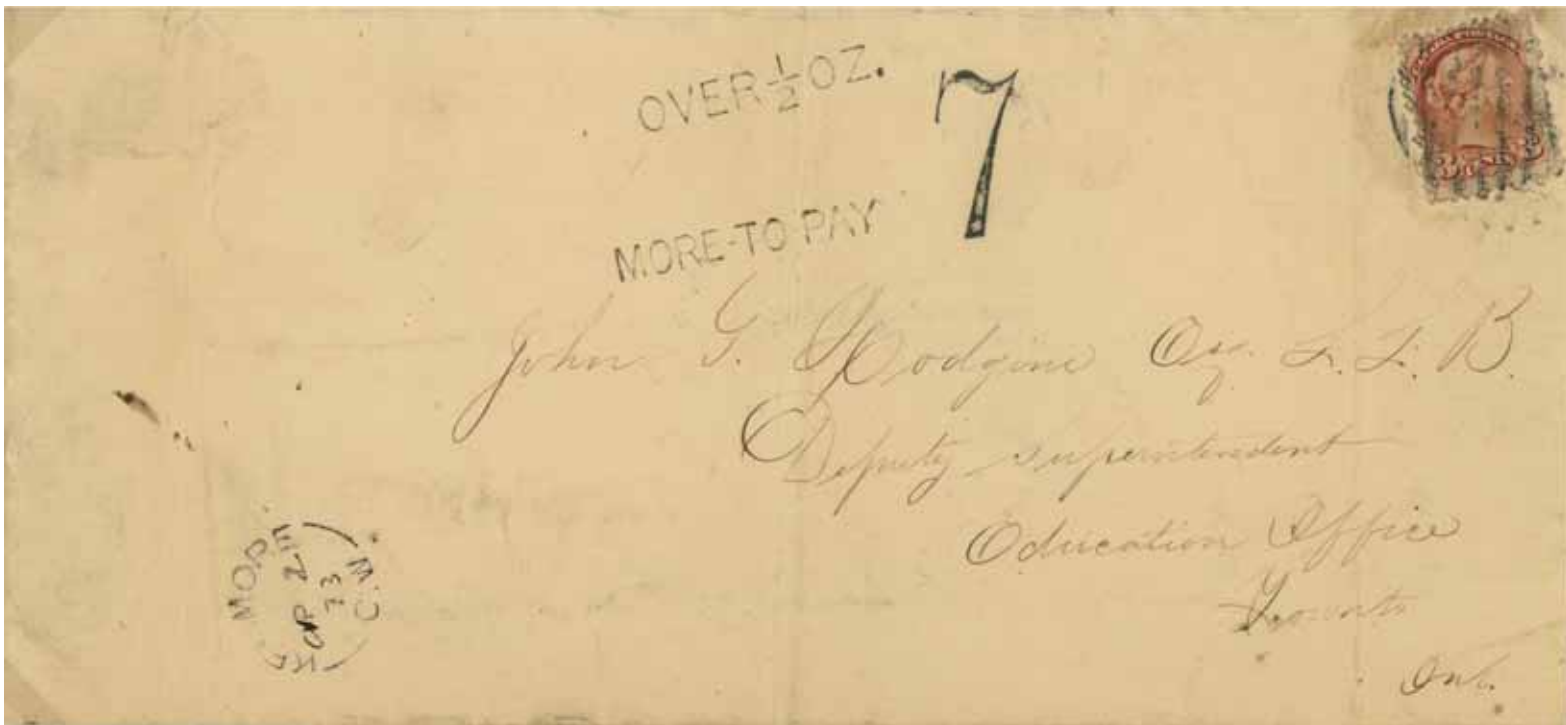 OVER ½ OZ.
7
MORE-TO PAY
John G. Hodgins Esq. L. L. B.
Deputy Superintendent
Education Office
Toronto
Ont.
C.W.
AP 2
73